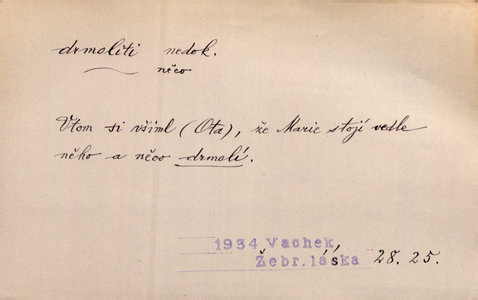 drmoliti nedok.
něco
Vtom si všiml (Ota), že Marie stojí vedle
něho a něco drmolí.
1934 Vachek,
Žebr. láska 28. 25.